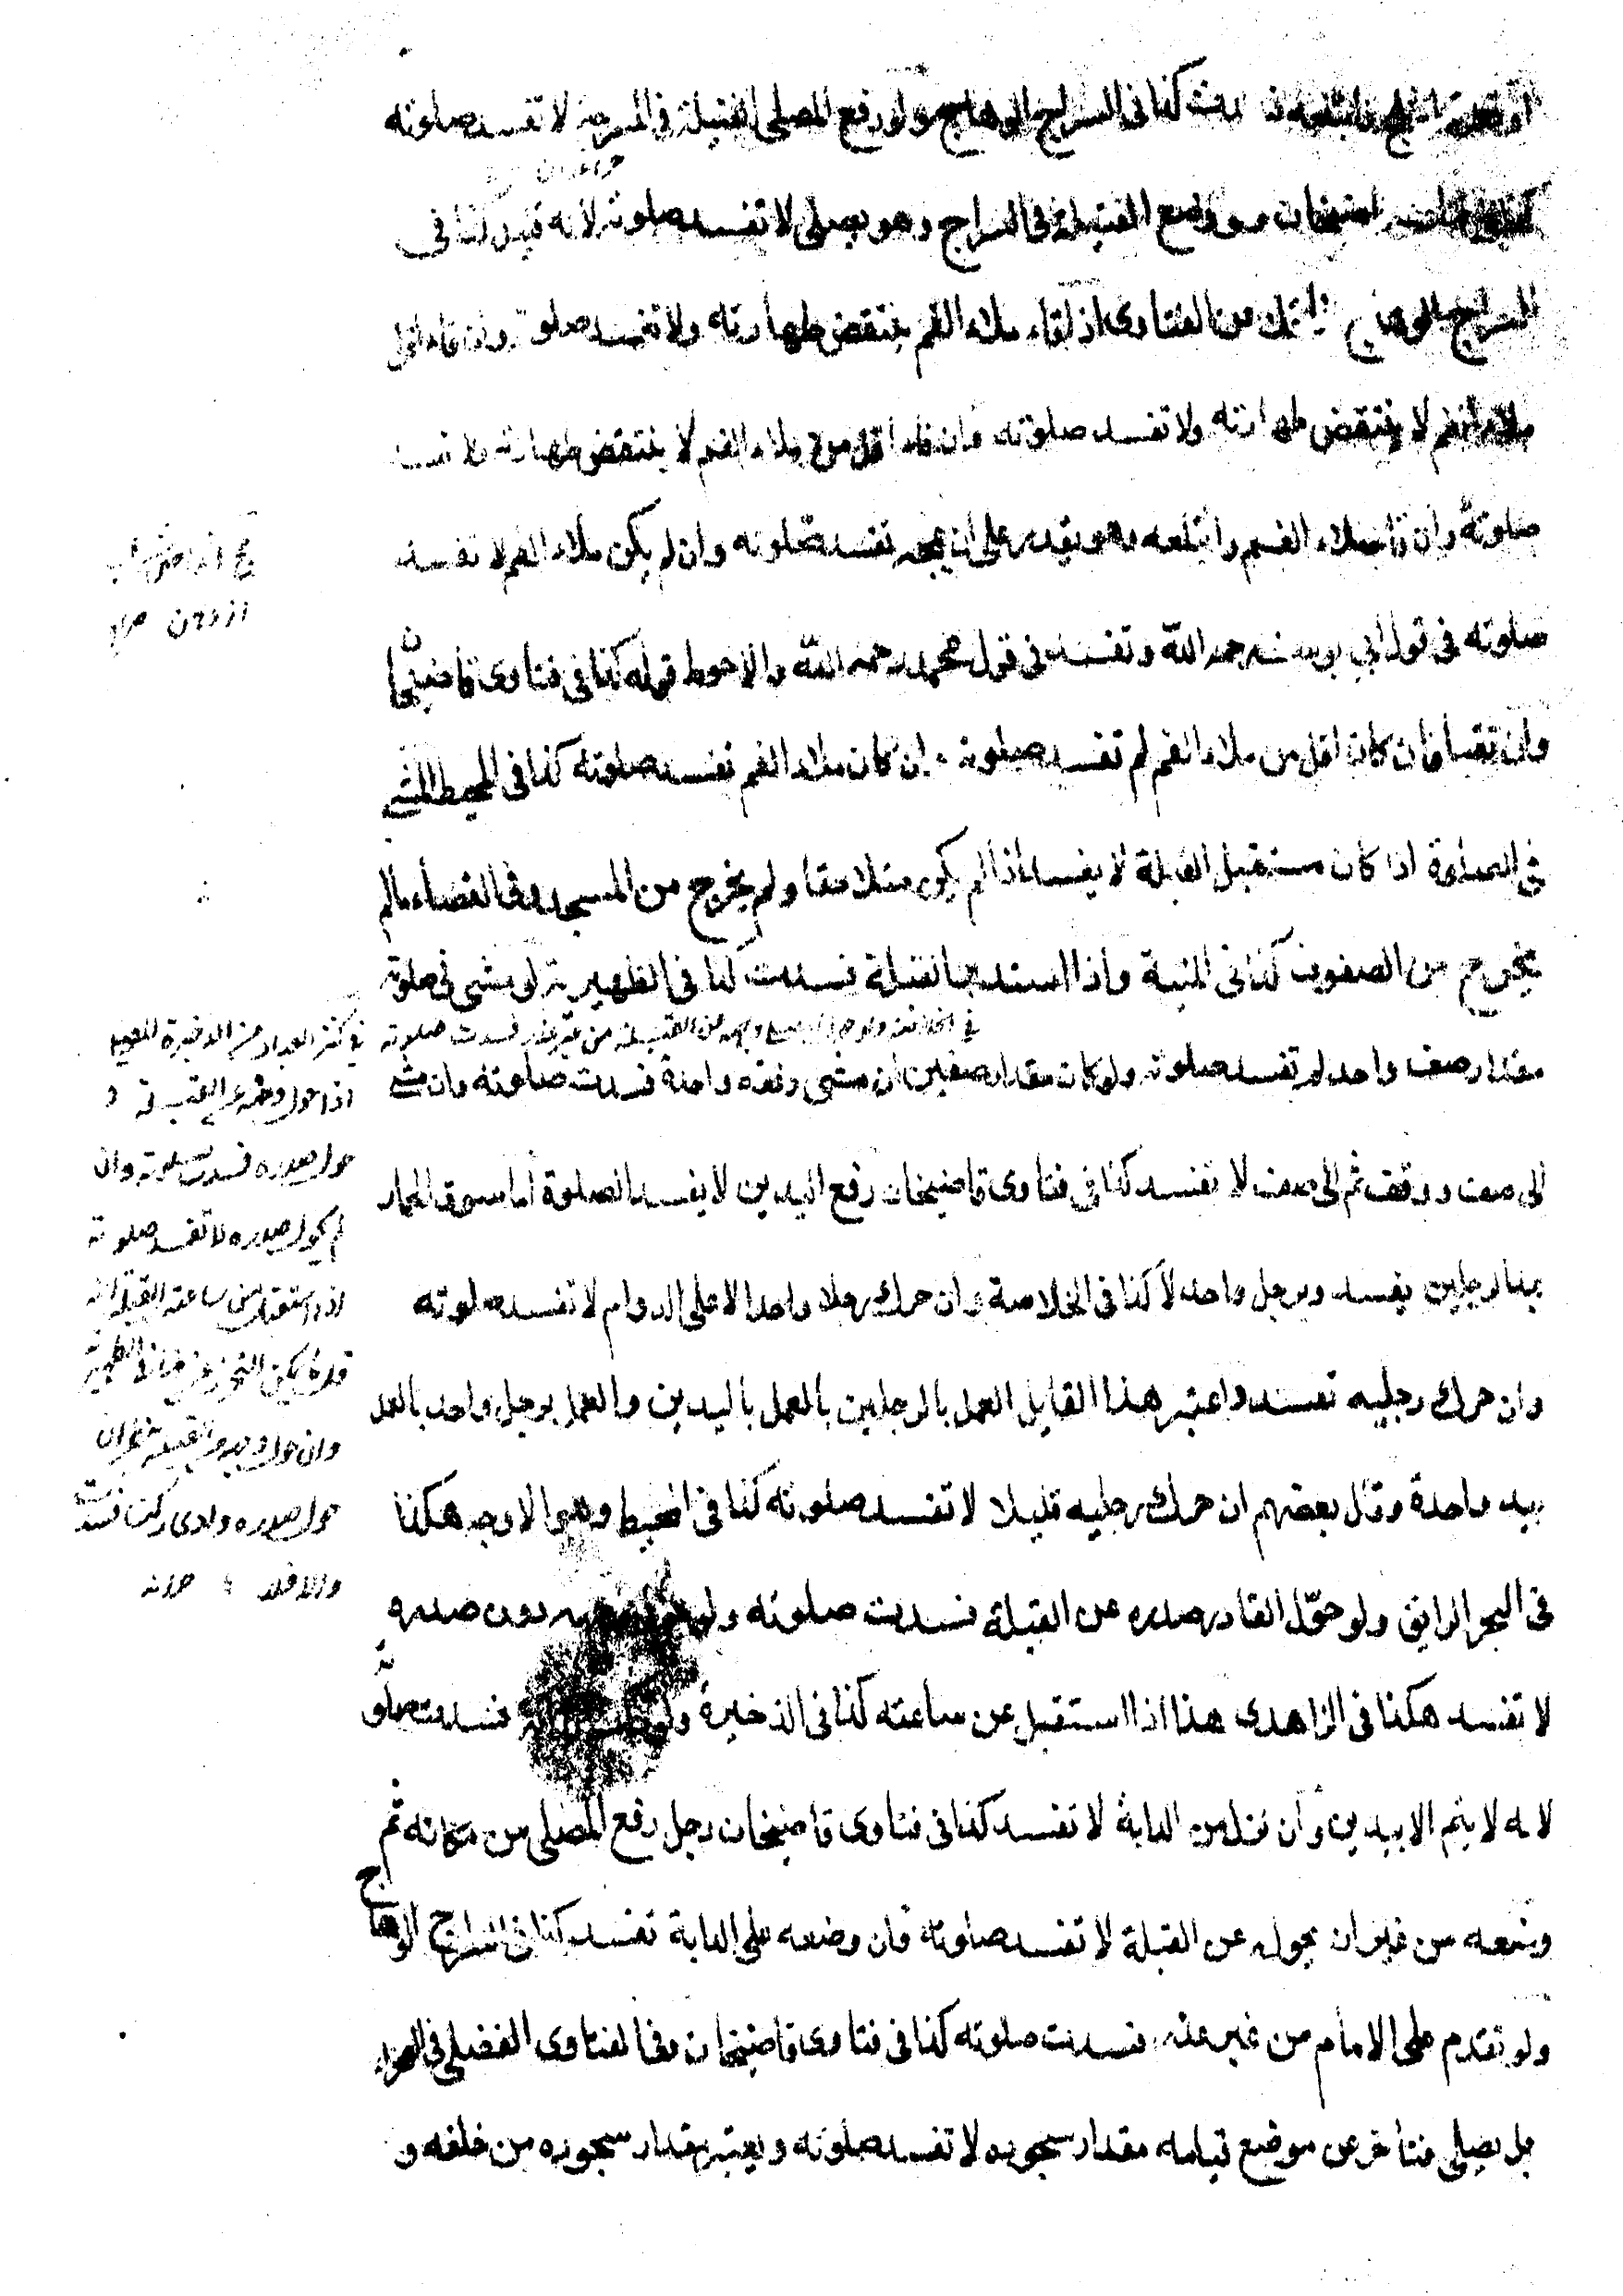 كذا فى السراج الوهاج ولو رفع المصلى الفتيلة فى المسرجة لا تفسد صلوته
وضع الفتيلة فى السراج وهو يصلى لا تفسد صلوته لانه قليل كذا فى
السراج الوهاج من الفتاوى اذا قاء ملاء الفم ينتقض طهارته ولا تفسد صلوته وان قاء اقل
ملاء الفم لا ينتقض طهارته ولا تفسد صلوته وان قاء اقل من ملاء الفم لا ينتقض طهارته ولا تفسد
صلوته وان قاء ملاء الفم وابتلعه وهو يقدر على ان يمجه تفسد صلوته وان لم يكن ملاء الفم لا تفسد
صلوته فى قول ابي يوسف رحمه الله وتفسد فى قول محمد رحمه الله والاحوط قوله كذا فى فتاوى قاضيخان
وان تقيا فان كان اقل من ملاء الفم لم تفسد صلوته وان كان ملاء الفم تفسد صلوته كذا فى المحيط المشى
فى الصلوة اذا كان مستقبل القبلة لا يفسد اذا لم يكن متلاحقا ولم يخرج من المسجد وفى الفضاء ما لم
يخرج من الصفوف كذا فى المنية واذا استدبر القبلة فسدت كذا فى الظهيرية لو مشى فى صلوته
مقدار صف واحد لم تفسد صلوته ولو كان مقدار صفين ان مشى دفعة واحدة فسدت صلوته وان مشى
الى صف ووقف ثم الى صف لا تفسد كذا فى فتاوى قاضيخان رفع اليدين لا يفسد الصلوة اما سوق الحمار
بمد الرجلين يفسد وبرجل واحد لا كذا فى الخلاصة وان حرك رجلا واحدا لا على الدوام لا تفسد صلوته
وان حرك رجليه تفسد واعتبر هذا القايل العمل بالرجلين بالعمل باليدين والعمل برجل واحد بالعمل
بيد واحدة وقال بعضهم ان حرك رجليه قليلا لا تفسد صلوته كذا فى المحيط وهو الاوجه هكذا
فى البحر الرايق ولو حوّل القادر صدره عن القبلة فسدت صلوته ولو دون صدره
لا تفسد هكذا فى الزاهدى هذا اذا استقبل من ساعته كذا فى الذخيرة ولو فسدت صلوته
لانه لا يتم الا بيدين وان نزل من الدابة لا تفسد كذا فى فتاوى قاضيخان رجل رفع المصلى من مكانه ثم
وضعه من غير ان يحول عن القبلة لا تفسد صلوته وان وضعه على الدابة تفسد كذا فى السراج الوهاج
ولو تقدم على الامام من غير عذر فسدت صلوته كذا فى فتاوى قاضيخان وفى الفتاوى الفضلى فى الصحراء
رجل يصلى فتأخر عن موضع قيامه مقدار سجوده لا تفسد صلوته ويعتبر مقدار سجوده من خلفه و
فى كنز العباد من الذخيرة
اذا حول وجهه عن القبلة و
حول صدره فسدت صلوته وان
لم يحول صدره لا تفسد صلوته
اذا استقبل من ساعته القبلة
وان حول وجهه عن القبلة
حول صدره وادى ركنا فسدت
والا فلا